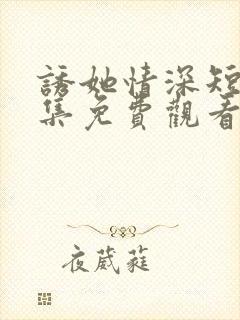 誘她情深短
集免費觀看
夜葳蕤